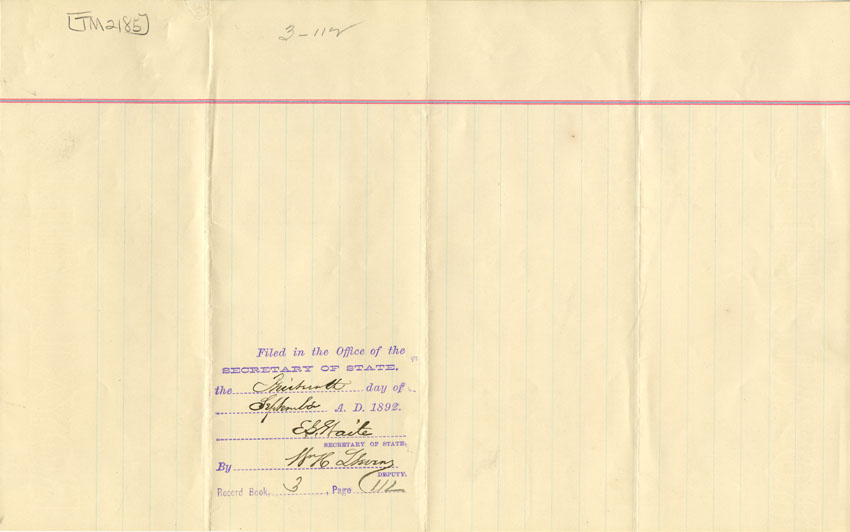 [TM2185]
3-112
Filed in the Office of the
SECRETARY OF STATE,
the day of
September A. D. 1892.
E.G. Waite
SECRETARY OF STATE.
By Wm H. Stevens
DEPUTY.
Record Book, 3, Page 112